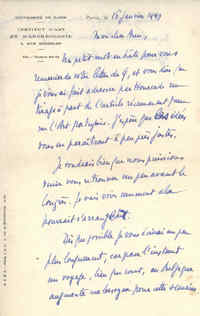 UNIVERSITÉ DE PARIS
INSTITUT D'ART
ET D'ARCHÉOLOGIE
3, RUE MICHELET
Paris, le 15 janvier 1949
Mon cher Ami,
Un petit mot en hâte pour vous
remercier de votre lettre du 9, et vous dire que
je vous ai fait adresser par Mercado un
tirage à part de l'article récemment paru
sur l'Art portugais. J'espère que les idées
vous en paraîtront à peu près justes.
Je voudrais bien que nous puissions
nous retrouver un peu avant le
Congrès. Je vais voir comment cela
pourrait s'arranger.
Dès que possible je vous écrirai un peu
plus longuement, car pour l'instant
un voyage, bien que court, en Belgique
augmente ma besogne pour cette semaine.